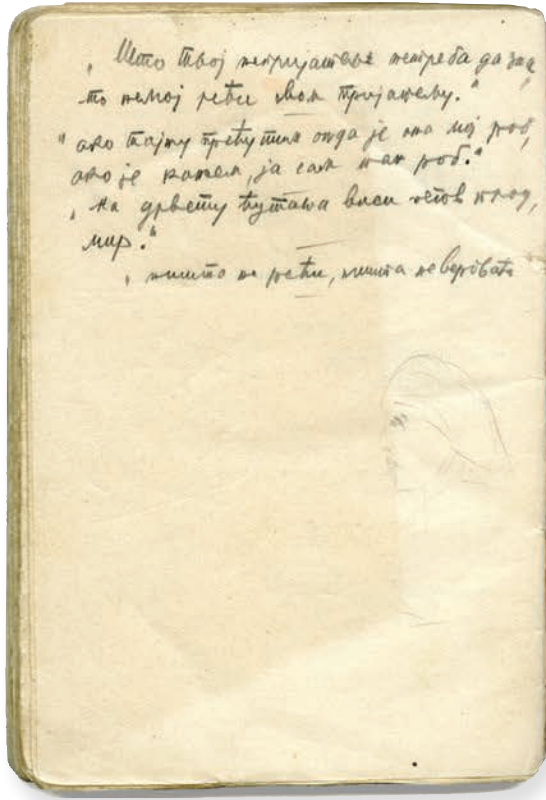 „ Што твој непријатељ нетреба да зна
то немој рећи свом пријатељу.“
„ ако тајну прећутим онда је она мој роб,
ако је кажем, ја сам њен роб.“
„ На дрвету ћутања виси његов плод,
мир.“
„ ништо не рећи, ништа не веровати “